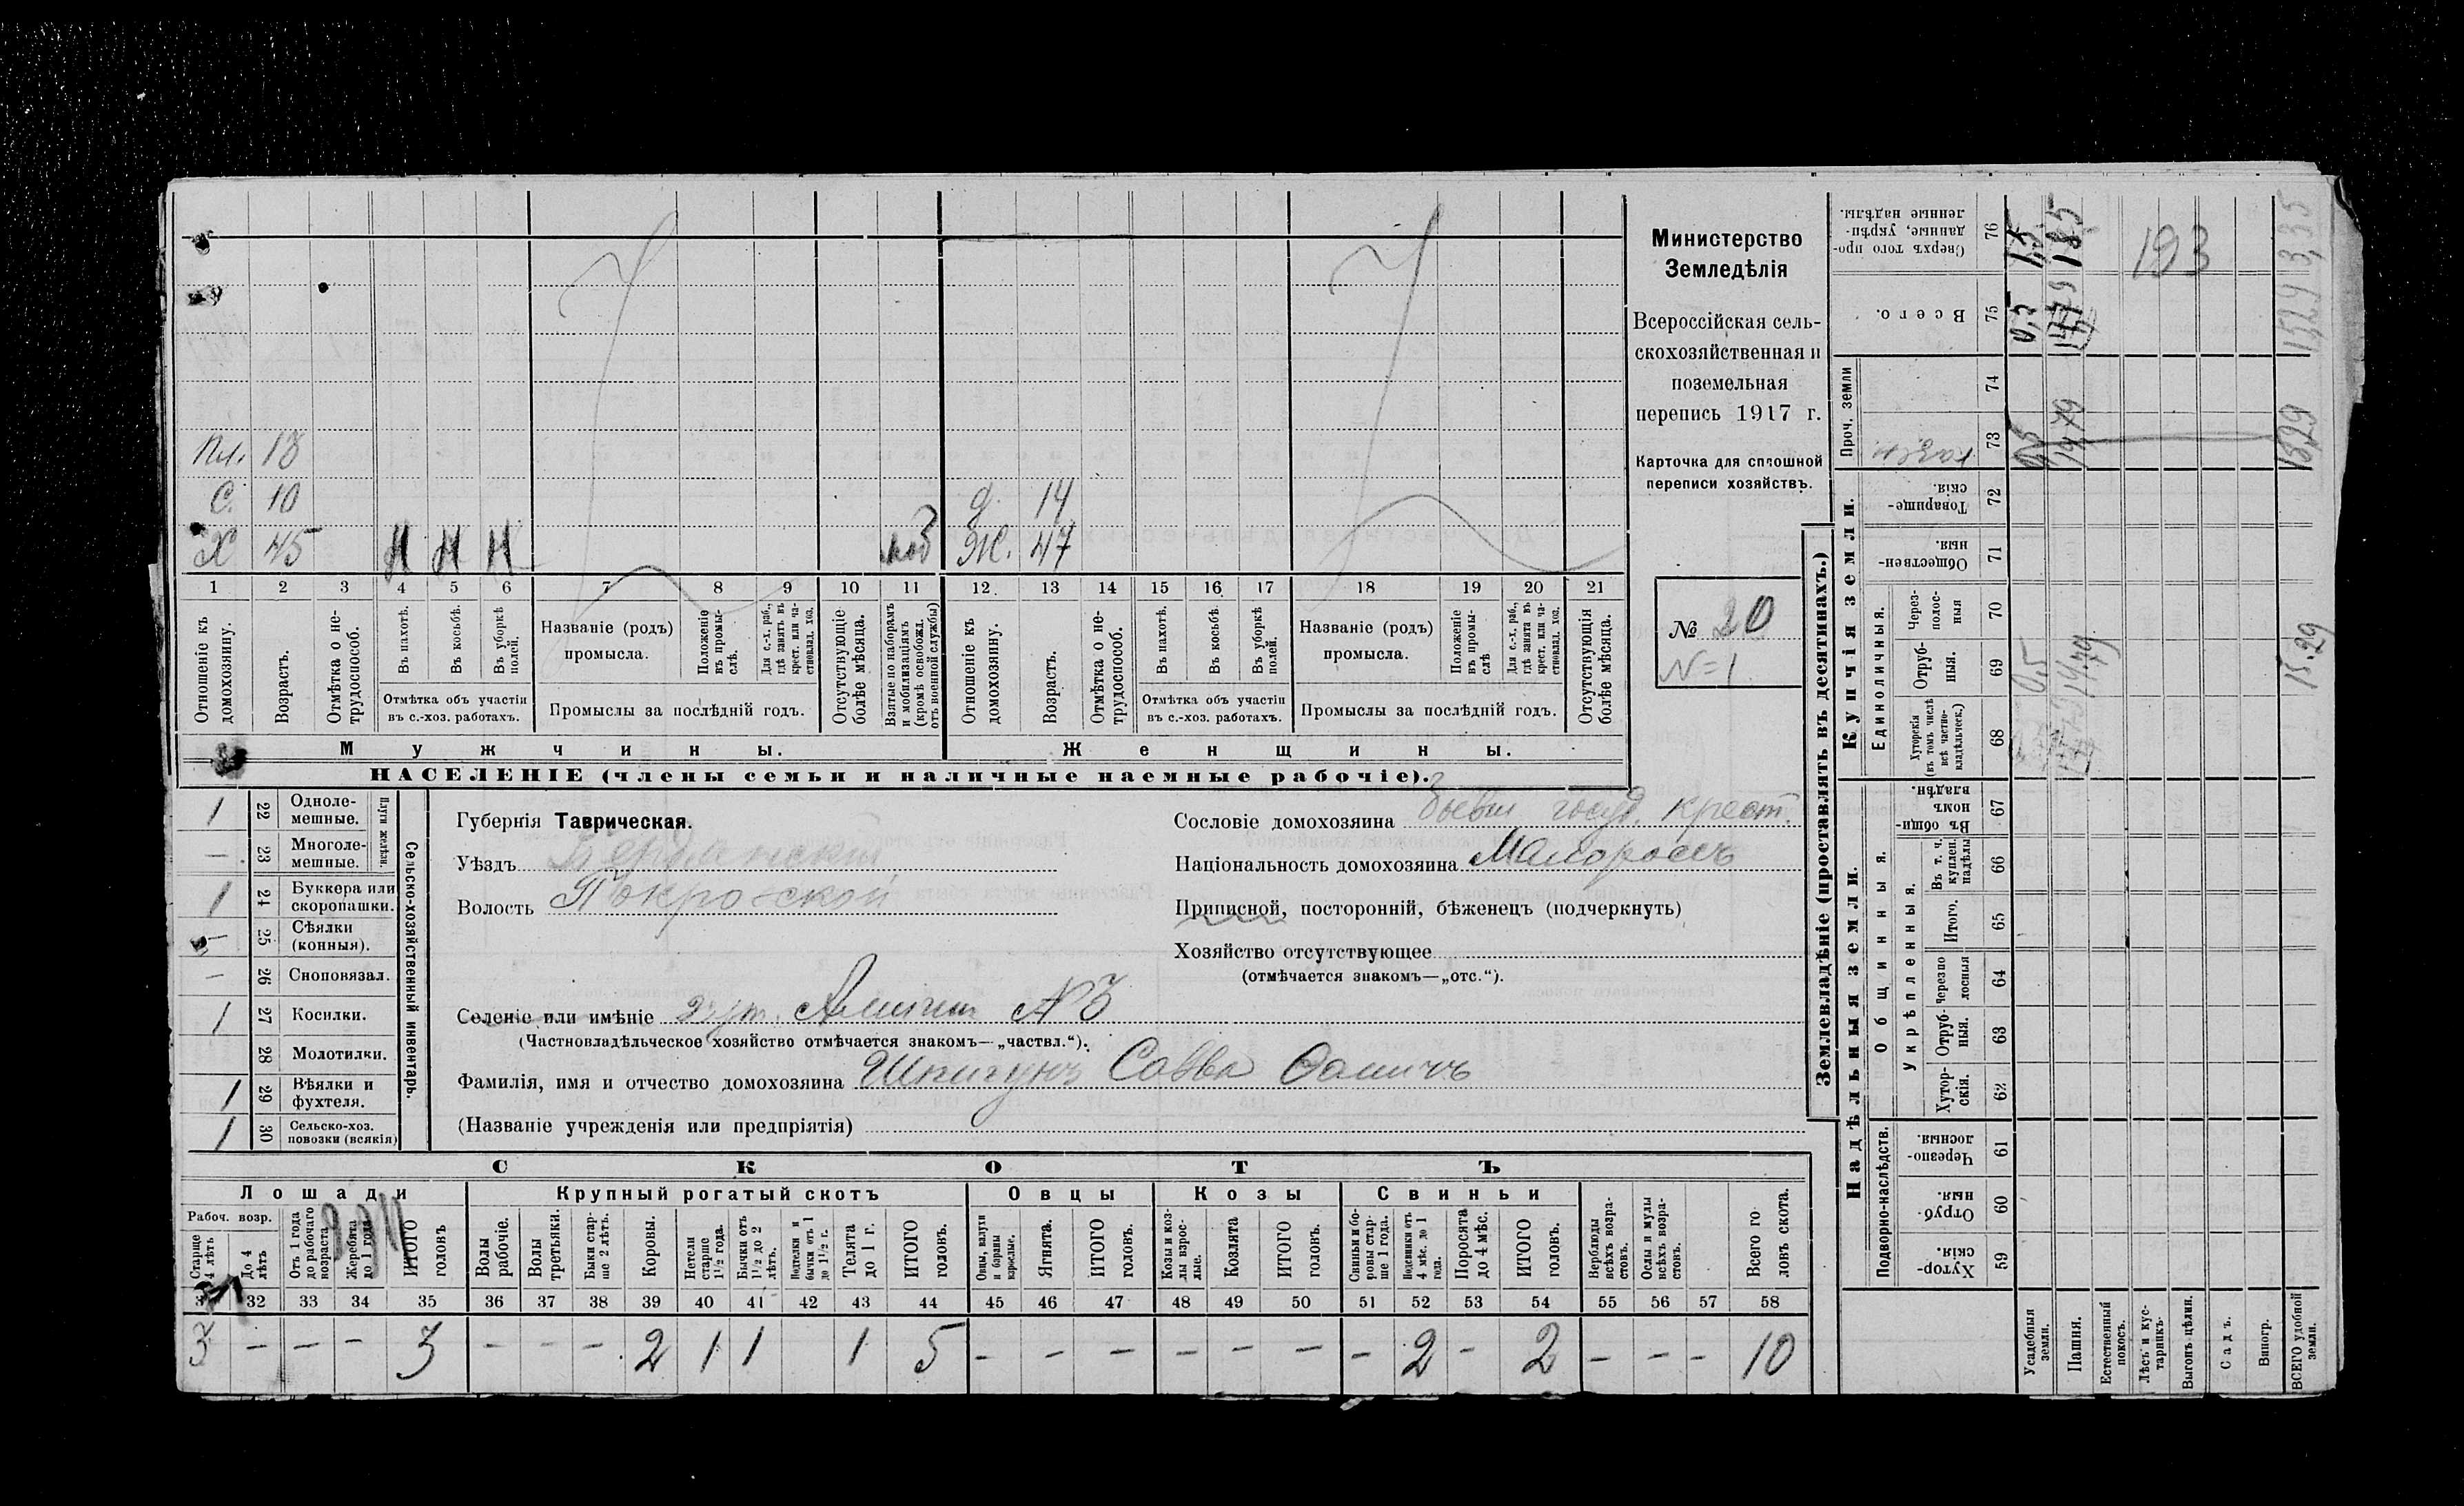 Министерство
Земледѣлія
Всероссійская сель-
скохозяйственная и
поземельная
перепись 1917 г.
Карточка для сплошной
переписи хозяйствъ.
№ 20
N=1
Пл. 18
С. 10
Д. 14
Х 45 Н Н Н моб Ж. 47
1 2 3 4 5 6 7 8 9 10 11 12. 13 14 15 16 17 18 19 20 21
Отношеніе къ домохозяину.
Возрастъ.
Отмѣтка о не-трудоспособ.
Въ пахотѣ.
Въ косьбѣ.
Въ уборкѣ полей.
Отмѣтка объ участіи
въ с.-хоз. работахъ.
Названіе (родъ)
промысла.
Положеніе въ промы-слѣ.
Для с.-х. раб., гдѣ занятъ въ крест. или ча-стновлад. хоз.
Промыслы за послѣдній годъ.
Отсутствующіе болѣе мѣсяца.
Взятые по наборамъ и мобилизаціямъ (кромѣ освобожд. отъ военной службы)
Отношеніе къ домохозяину.
Возрастъ.
Отмѣтка о не-трудоспособ.
Въ пахотѣ.
Въ косьбѣ.
Въ уборкѣ полей.
Отмѣтка объ участіи
въ с.-хоз. работахъ.
Названіе (родъ)
промысла.
Положеніе въ промы-слѣ
Для с.-х. раб., гдѣ занята въ крест. или ча-стновлад. хоз.
Промыслы за послѣдній годъ.
Отсутствующія болѣе мѣсяца.
Мужчины.
Женщины.
НАСЕЛЕНІЕ (члены семьи и наличные наемные рабочіе).
1 22 Одноле-мешные.
— 23 Многоле-мешные.
Плуги желѣзн.
1 24 Буккера или скоропашки.
— 25 Сѣялки (конныя).
— 26 Сноповязал.
1 27 Косилки.
28 Молотилки.
1 29 Вѣялки и фухтеля.
1 30 Сельско-хоз. повозки (всякія)
Сельско-хозяйственный инвентарь.
Губернія Таврическая.
Уѣздъ Бердянскій
Волость Покровской
Сословіе домохозяина бывш госуд. крест.
Національность домохозяина Малороссъ
Приписной, посторонній, бѣженецъ (подчеркнуть)
Хозяйство отсутствующее
(отмѣчается знакомъ—„отс.“).
Селеніе или имѣніе хут. №3
(Частновладѣльческое хозяйство отмѣчается знакомъ—„частвл.“).
Фамилія, имя и отчество домохозяина Шпигунъ Савва Ѳомичъ
(Названіе учрежденія или предпріятія)
СКОТЪ
Лошади
Крупный рогатый скотъ
Овцы
Козы
Свиньи
Рабоч. возр.
Старше 4 лѣтъ
До 4 лѣтъ
Отъ 1 года до рабочаго возраста
Жеребята до 1 года
ИТОГО головъ
Волы рабочіе.
Волы третьяки.
Быки стар-ше 2 лѣтъ.
Коровы.
Нетели старше 1½ года.
Бычки отъ 1½ до 2 лѣтъ.
Водтелки и бычки отъ 1 до 1½ г.
Телята до 1 г.
ИТОГО головъ.
Овцы, валухи и бараны взрослые.
Ягнята.
ИТОГО головъ.
Козы и коз-лы взрос-лые.
Козлята
ИТОГО головъ.
Свиньи и бо-ровы стар-ше 1 года.
Подсвинки отъ 4 мѣс. до 1 года.
Поросята до 4 мѣс.
ИТОГО головъ.
Верблюды всѣхъ возра-стовъ.
Ослы и мулы всѣхъ возра-стовъ.
Всего го-ловъ скота.
32 33 34 35 36 37 38 39 40 41 42 43 44 45 46 47 48 49 50 51 52 53 54 55 56 57 58
3 — — — 3 — — — 2 1 1 1 5 — — — — — — — 2 — 2 — — — 10
Землевладѣніе (проставлять въ десятинахъ.)
Купчія земли.
Надѣльныя земли.
Сверхъ того про-данные, укрѣп-ленные надѣлы. 76 1,5 185 193
Всего. 75 0,5
Проч. земли
74
73
Товарище-скія. 72
Обществен-ныя. 71
Единоличныя.
Через-полос-ныя 70
Отруб-ныя. 69 0,5 14.79 15.29
Хуторскія (въ томъ числѣ всѣ частно-владѣльческ.) 68
Въ общин-номъ владѣн. 67
Въ т. ч. куплен. надѣлы 66
Итого. 65
Черезпо-лосныя 64
Отруб-ныя. 63
Хутор-скія. 62
Общинныя.
Укрѣпленныя.
Подворно-наслѣдств.
Черезпо-лосныя. 61
Отруб-ныя. 60
Хутор-скія. 59
Усадебныя земли.
Пашня.
Естественный покосъ.
Лѣсъ и кус-тарникъ.
Выгонъ цѣлин.
Садъ.
Виногр.
ВСЕГО удобной земли.